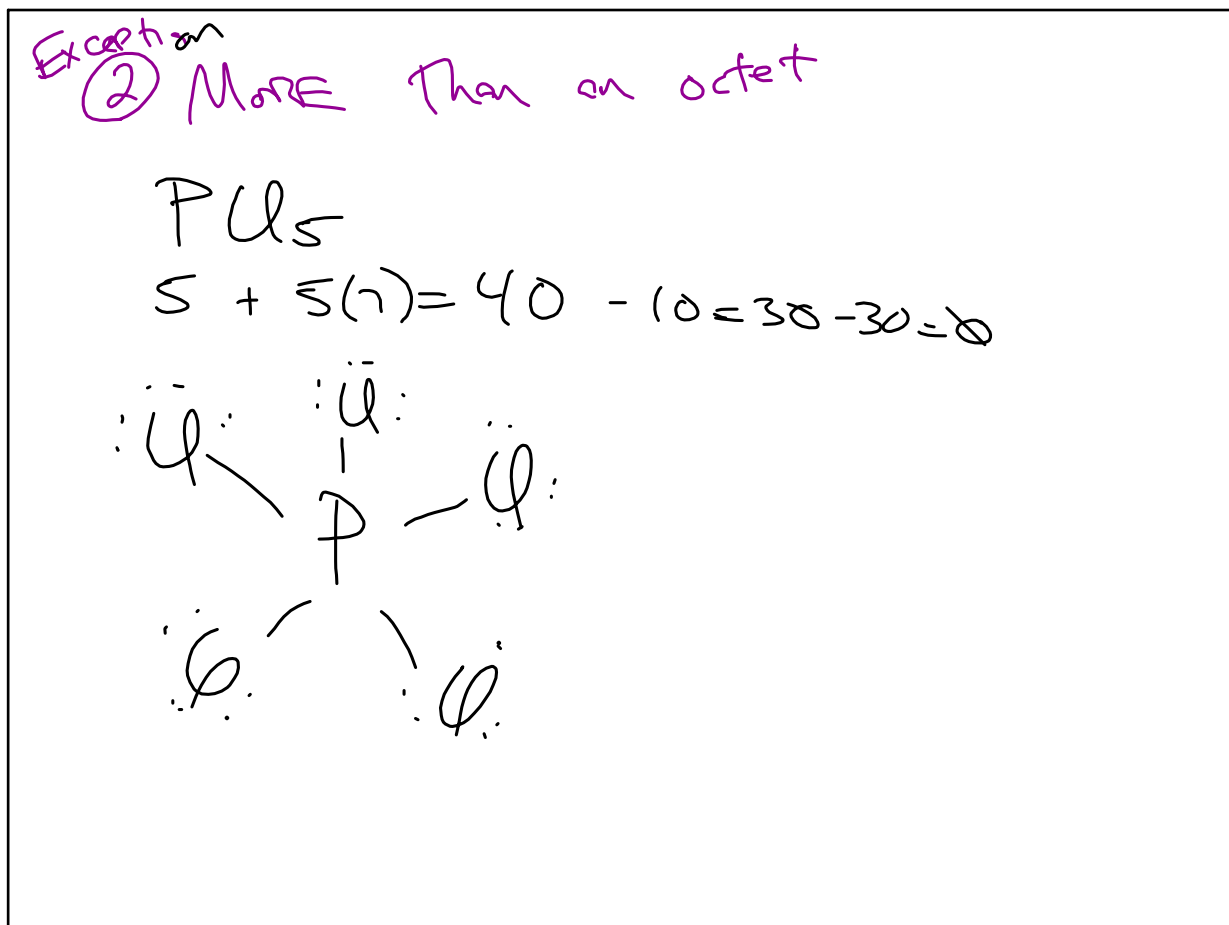 Exception
② MORE Than an octet
PCl₅
5 + 5(7) = 40 - 10 = 30 - 30 = 0
Cl
Cl
Cl
P
Cl
Cl